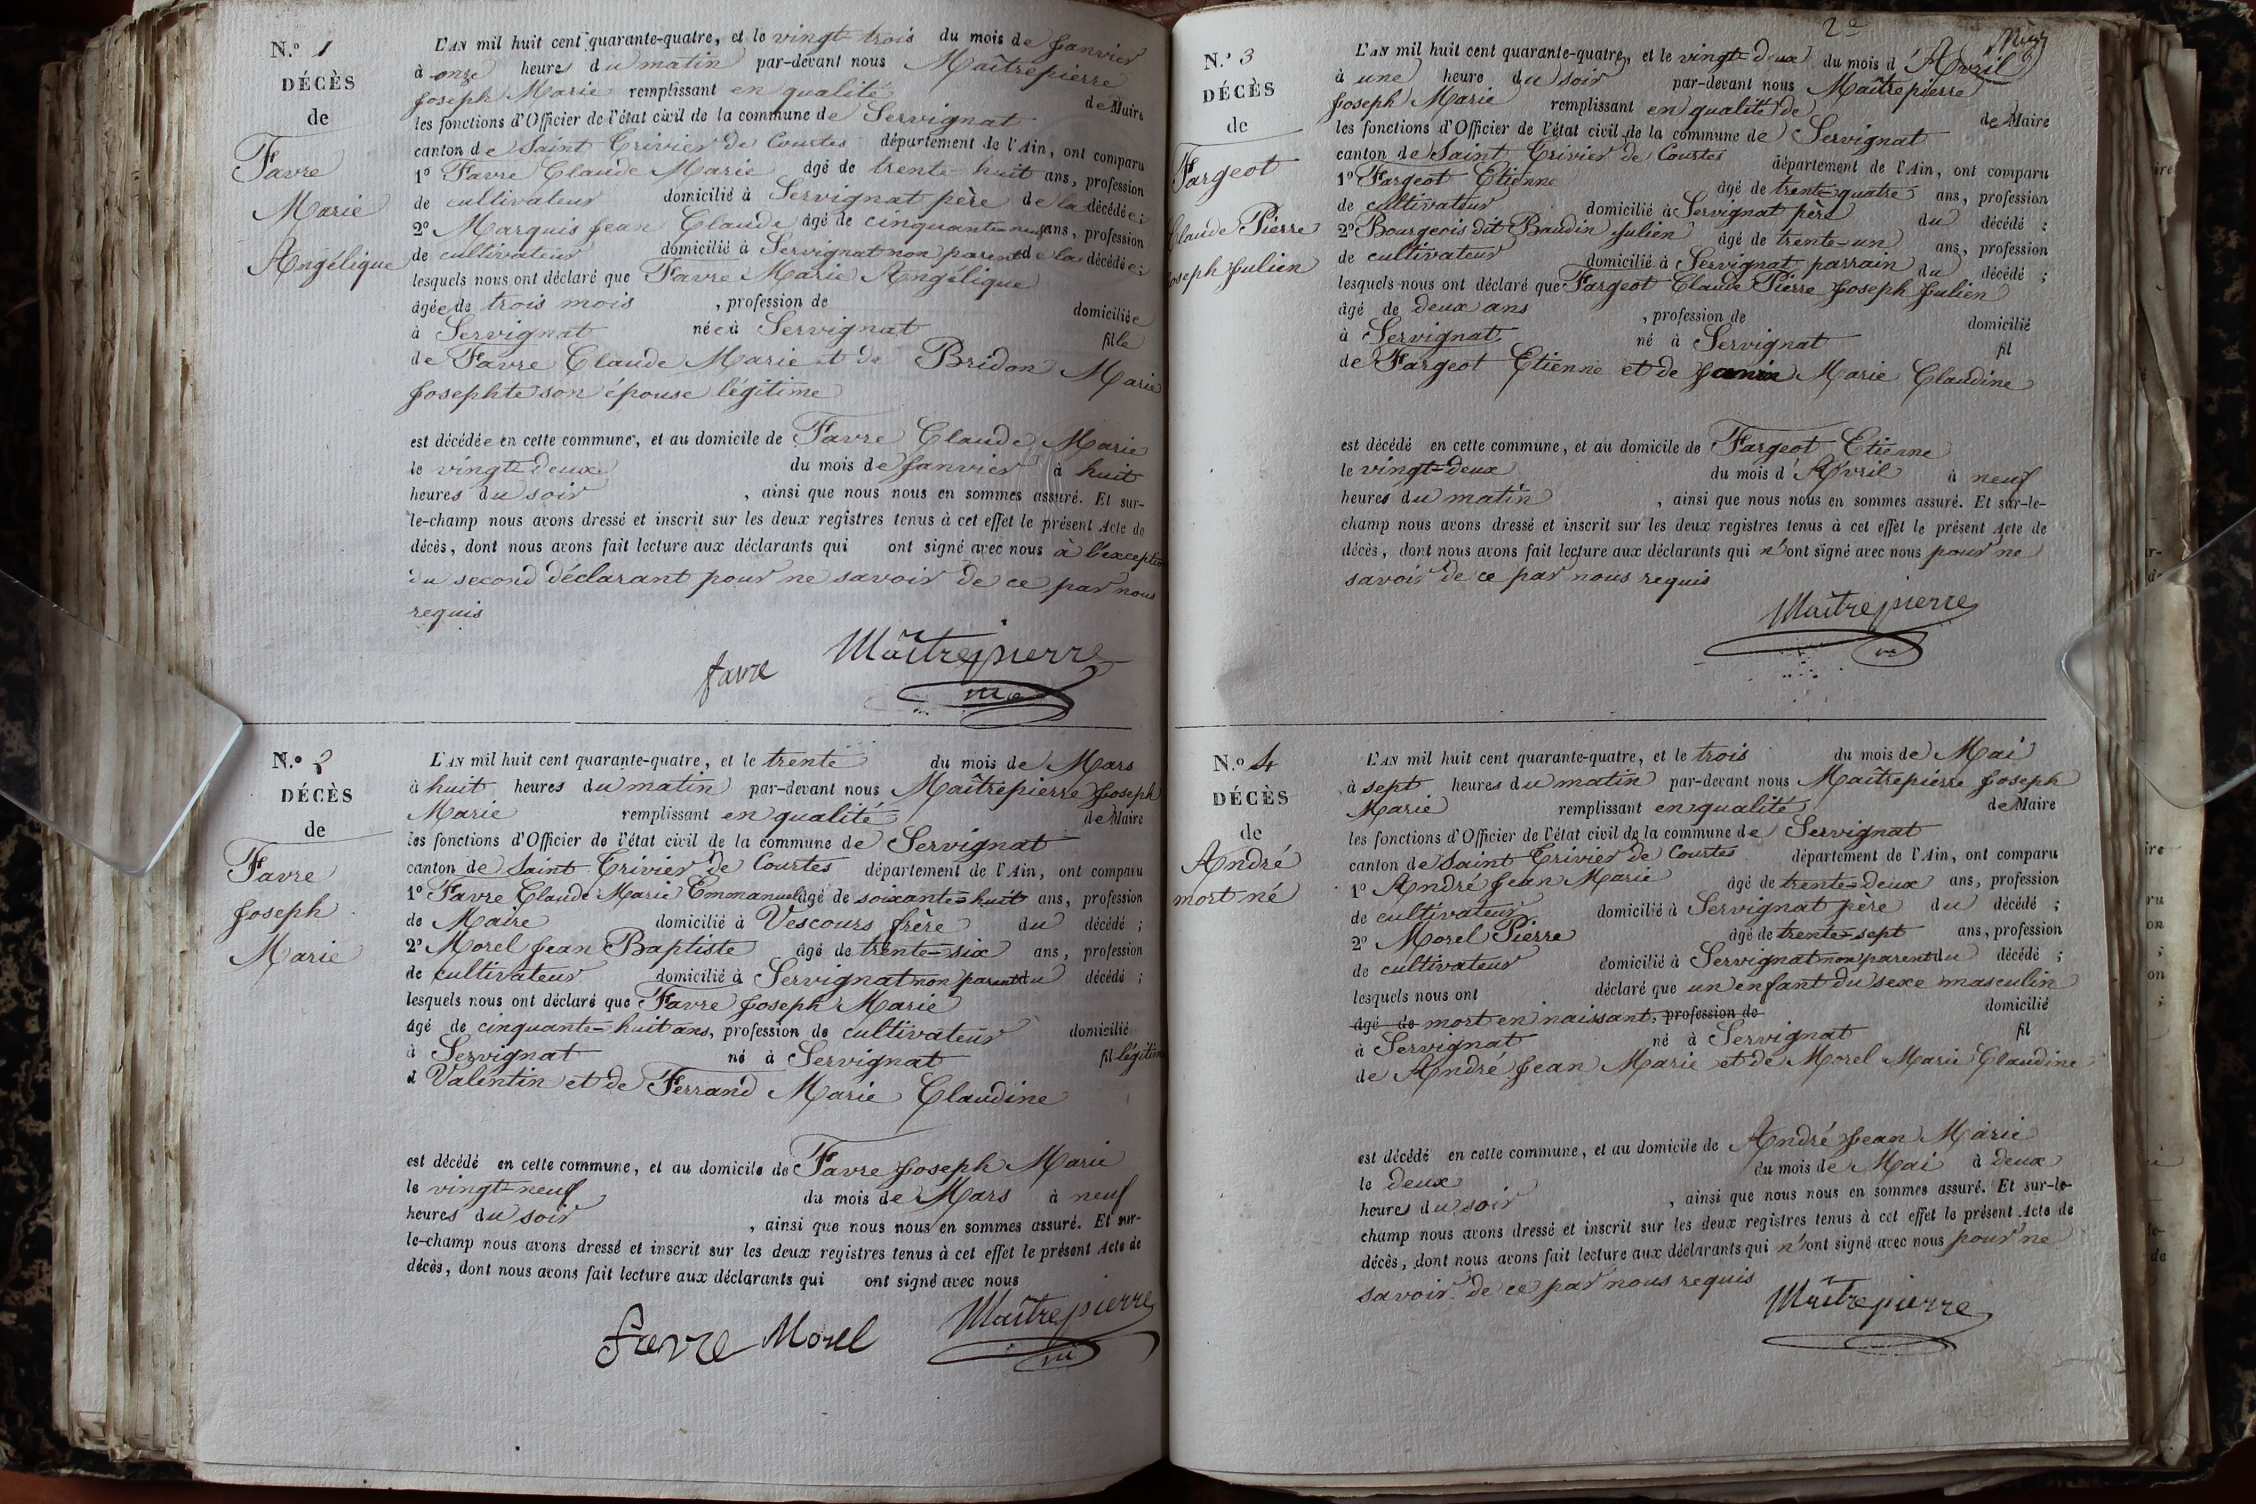 N.º 1
DÉCÈS
de
Favre
Marie
Angélique
L'AN mil huit cent quarante-quatre, et le vingt-trois du mois de Janvier
à onze heures du matin par-devant nous Maîtrepierre
Joseph Marie remplissant en qualité de Maire
les fonctions d'Officier de l'état civil de la commune de Servignat
canton de Saint Trivier de Courtes département de l'Ain, ont comparu
1º Favre Claude Marie âgé de trente-huit ans, profession
de cultivateur domicilié à Servignat père de la décédée;
2º Marquis Jean Claude âgé de cinquante-neuf ans, profession
de cultivateur domicilié à Servignat non parent de la décédée;
lesquels nous ont déclaré que Favre Marie Angélique
âgée de trois mois , profession de domiciliée
à Servignat née à Servignat fille
de Favre Claude Marie et de Bridon Marie
Josephte son épouse légitime
est décédée en cette commune, et au domicile de Favre Claude Marie
le vingt-deux du mois de Janvier à huit
heures du soir , ainsi que nous nous en sommes assuré. Et sur-
le-champ nous avons dressé et inscrit sur les deux registres tenus à cet effet le présent Acte de
décès, dont nous avons fait lecture aux déclarants qui ont signé avec nous à l'exception
du second déclarant pour ne savoir de ce par nous
requis
favre Maîtrepierre
N.º 2
DÉCÈS
de
Favre
Joseph
Marie
L'AN mil huit cent quarante-quatre, et le trente du mois de Mars
à huit heures du matin par-devant nous Maîtrepierre Joseph
Marie remplissant en qualité de Maire
les fonctions d'Officier de l'état civil de la commune de Servignat
canton de Saint Trivier de Courtes département de l'Ain, ont comparu
1º Favre Claude Marie Emmanuel âgé de soixante-huit ans, profession
de Maire domicilié à Vescours frère du décédé;
2º Morel Jean Baptiste âgé de trente-six ans, profession
de cultivateur domicilié à Servignat non parent du décédé;
lesquels nous ont déclaré que Favre Joseph Marie
âgé de cinquante-huit ans, profession de cultivateur domicilié
à Servignat né à Servignat fil légitime
d Valentin et de Ferrand Marie Claudine
est décédé en cette commune, et au domicile de Favre Joseph Marie
le vingt-neuf du mois de Mars à neuf
heures du soir , ainsi que nous nous en sommes assuré. Et sur-
le-champ nous avons dressé et inscrit sur les deux registres tenus à cet effet le présent Acte de
décès, dont nous avons fait lecture aux déclarants qui ont signé avec nous
favre Morel Maîtrepierre
2e
N.º 3
DÉCÈS
de
Fargeot
Claude Pierre
Joseph Julien
L'AN mil huit cent quarante-quatre, et le vingt-deux du mois d'Avril
à une heure du soir par-devant nous Maîtrepierre
Joseph Marie remplissant en qualité de de Maire
les fonctions d'Officier de l'état civil de la commune de Servignat
canton de Saint Trivier de Courtes département de l'Ain, ont comparu
1º Fargeot Etienne âgé de trente-quatre ans, profession
de cultivateur domicilié à Servignat père du décédé;
2º Bourgeois dit Baudin Julien âgé de trente-un ans, profession
de cultivateur domicilié à Servignat parrain du décédé;
lesquels nous ont déclaré que Fargeot Claude Pierre Joseph Julien
âgé de deux ans , profession de domicilié
à Servignat né à Servignat fil
de Fargeot Etienne et de Janin Marie Claudine
est décédé en cette commune, et au domicile de Fargeot Etienne
le vingt-deux du mois d'Avril à neuf
heures du matin , ainsi que nous nous en sommes assuré. Et sur-le-
champ nous avons dressé et inscrit sur les deux registres tenus à cet effet le présent Acte de
décès, dont nous avons fait lecture aux déclarants qui n'ont signé avec nous pour ne
savoir de ce par nous requis
Maîtrepierre
N.º 4
DÉCÈS
de
André
mort né
L'AN mil huit cent quarante-quatre, et le trois du mois de Mai
à sept heures du matin par-devant nous Maîtrepierre Joseph
Marie remplissant en qualité de Maire
les fonctions d'Officier de l'état civil de la commune de Servignat
canton de Saint Trivier de Courtes département de l'Ain, ont comparu
1º André Jean Marie âgé de trente-deux ans, profession
de cultivateur domicilié à Servignat père du décédé;
2º Morel Pierre âgé de trente-sept ans, profession
de cultivateur domicilié à Servignat non parent du décédé;
lesquels nous ont déclaré que un enfant du sexe masculin
âgé de mort en naissant, profession de domicilié
à Servignat né à Servignat fil
de André Jean Marie et de Morel Marie Claudine
est décédé en cette commune, et au domicile de André Jean Marie
le deux du mois de Mai à deux
heures du soir , ainsi que nous nous en sommes assuré. Et sur-le-
champ nous avons dressé et inscrit sur les deux registres tenus à cet effet le présent Acte de
décès, dont nous avons fait lecture aux déclarants qui n'ont signé avec nous pour ne
savoir de ce par nous requis
Maîtrepierre